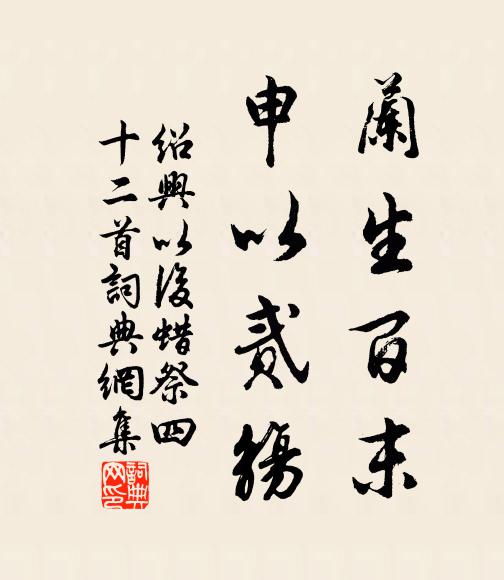 蘭生百末
申以貳觴
紹興以後蜡祭四
十二首詞典網集
詞典网印